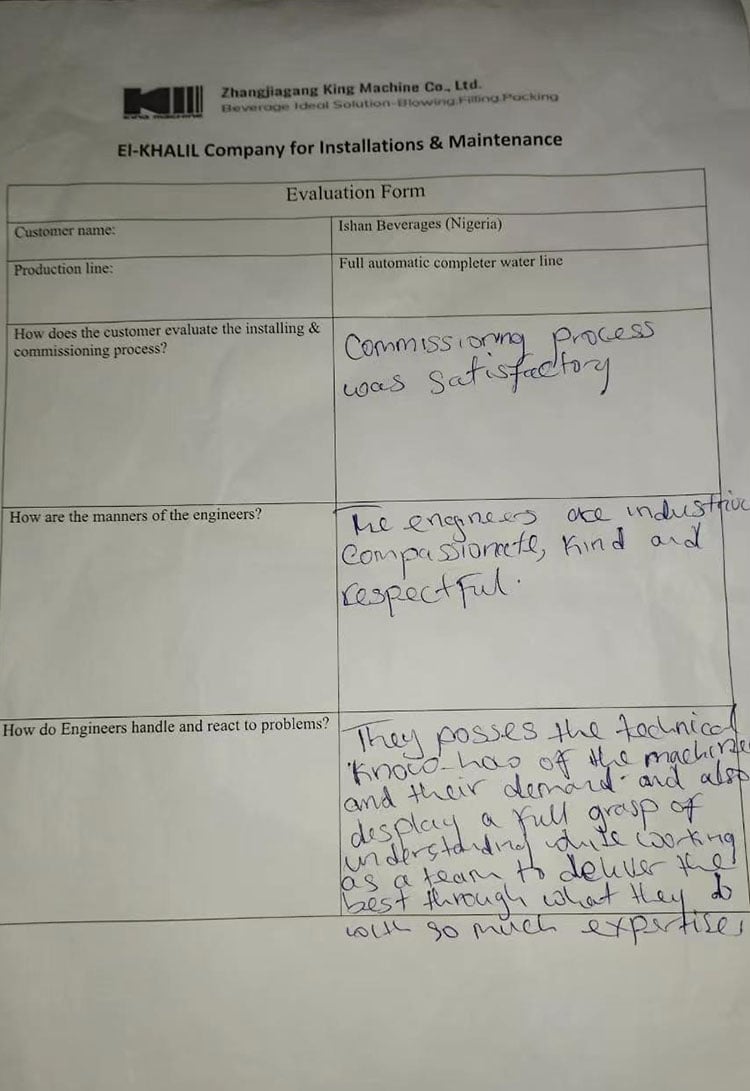 King machine
Zhangjiagang King Machine Co., Ltd.
Beverage Ideal Solution-Blowing.Filling.Packing
El-KHALIL Company for Installations & Maintenance
Evaluation Form
Customer name:
Ishan Beverages (Nigeria)
Production line:
Full automatic completer water line
How does the customer evaluate the installing &
commissioning process?
Commissioning process
was satisfactory
How are the manners of the engineers?
The engineers are industriou
Compassionate, kind and
respectful.
How do Engineers handle and react to problems?
They posses the technical
know-hao of the machine
and their demand and also
display a full grasp of
understanding while working
as a team to deliver the
best through what they do
with so much expertise,